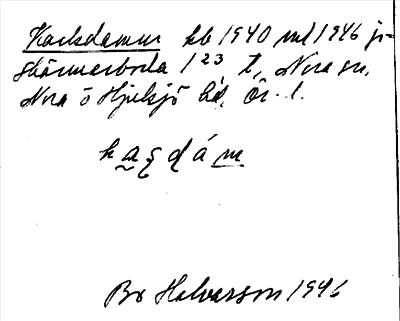 Karlsdammen kb 1940 ml 1946 ji-
skärmarboda 1 23 t, Nora sn,
Nora o Hjulsjö hd, Ör. l.
k a ş d á m
Bo Halvarson 1946